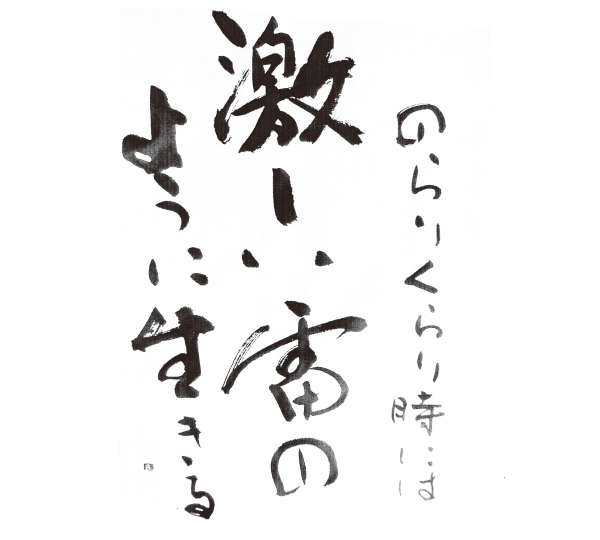 のらりくらり時には
激しい雷の
ように生きる